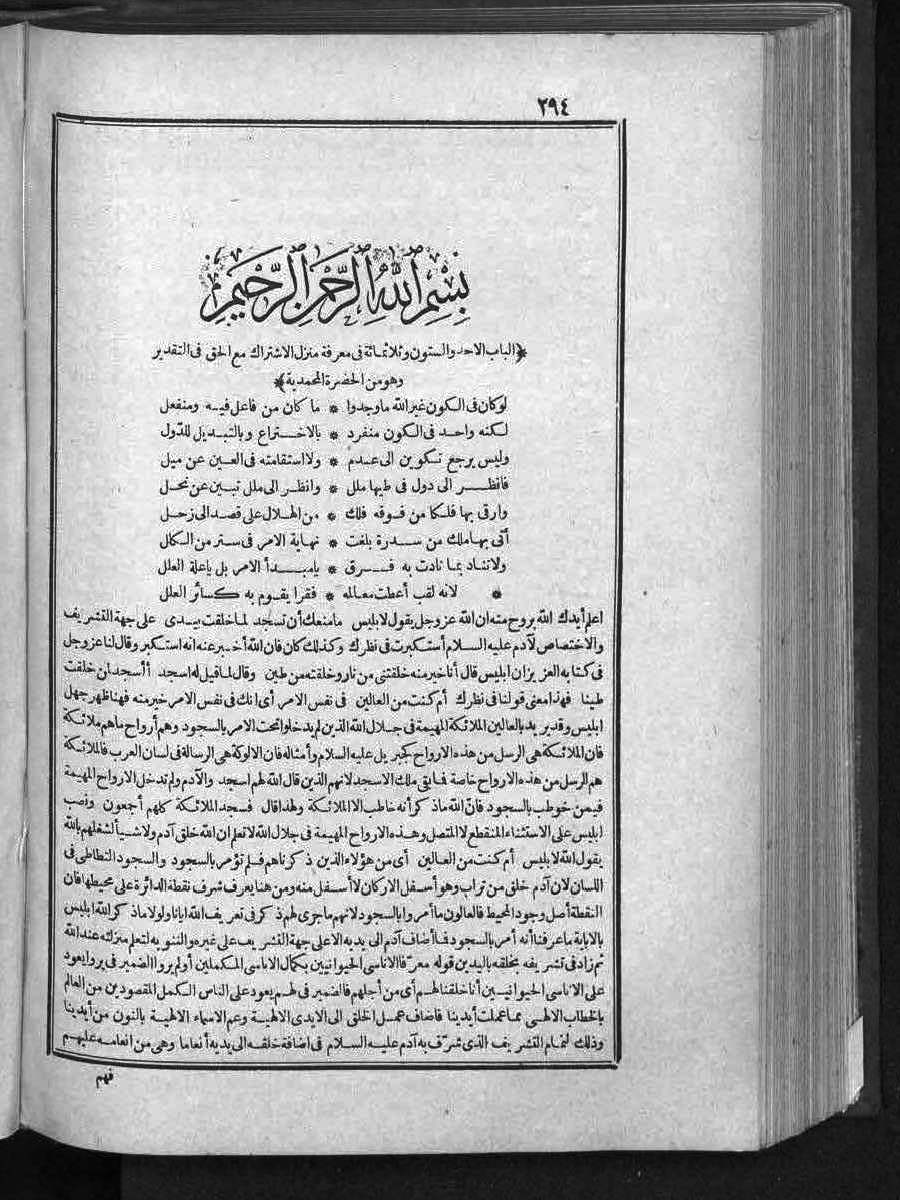 ٢٩٤
بسم الله الرحمن الرحيم
﴿الباب الاحد والستون وثلاثمائة فى معرفة منزل الاشتراك مع الحق فى التقدير
وهو من الحضرة المحمدية﴾
لو كان فى الكون غير الله ما وجدوا * ما كان من فاعل فيه ومنفعل
لكنه واحد فى الكون منفرد * بالاختراع وبالتبديل للدّول
وليس يرجع تكوين الى عدم * ولا استقامته فى العين عن ميل
فانظر الى دول فى طيها ملل * وانظر الى ملل تبين عن نحل
وارقى بها فلكا من فوقه فلك * من الهلال على قصد الى زحل
أتى بها ملك من سدرة بلغت * نهاية الامر فى ستر من الكلل
ولا تناد بما نادت به فرق * يا مبدأ الامر بل يا علة العلل
* لانه لقب أعطت معالمه * فقرا يقوم به كسائر العلل
اعلم أيدك الله بروح منه ان الله عز وجل يقول لابليس ما منعك أن تسجد لما خلقت بيدى على جهة التشريف
والاختصاص لآدم عليه السلام أستكبرت فى نظرك وكذلك كان فان الله أخبر عنه انه استكبر وقال لنا عز وجل
فى كتابه العزيز ان ابليس قال أنا خير منه خلقتنى من نار وخلقته من طين وقال لما قيل له اسجد أأسجد لمن خلقت
طينا فهذا معنى قولنا فى نظرك أم كنت من العالين فى نفس الامر أى انك فى نفس الامر خير منه فهنا ظهر جهل
ابليس وقد يريد بالعالين الملائكة المهيمة فى جلال الله الذين لم يدخلوا تحت الامر بالسجود وهم أرواح ما هم ملائكة
فان الملائكة هى الرسل من هذه الارواح كجبريل عليه السلام وأمثاله فان الالوكة هى الرسالة فى لسان العرب فالملائكة
هم الرسل من هذه الارواح خاصة فما بقى ملك الا سجد لانهم الذين قال الله لهم اسجدوا لآدم ولم تدخل الارواح المهيمة
فيمن خوطب بالسجود فانّ الله ما ذكر أنه خاطب الا الملائكة ولهذا قال فسجد الملائكة كلهم أجمعون ونصب
ابليس على الاستثناء المنقطع لا المتصل وهذه الارواح المهيمة فى جلال الله لا تعلم ان الله خلق آدم ولا شيأ لشغلهم بالله
يقول الله لابليس أم كنت من العالين أى من هؤلاء الذين ذكرناهم فلم تؤمر بالسجود والسجود التطاطى فى
اللسان لان آدم خلق من تراب وهو أسفل الاركان لا أسفل منه ومن هنا يعرف شرف نقطة الدائرة على محيطها فان
النقطة أصل وجود المحيط فالعالون ما أمروا بالسجود لانهم ما جرى لهم ذكر فى تعريف الله ايانا ولولا ما ذكر الله ابليس
بالاباية ما عرفنا أنه أمر بالسجود فما أضاف آدم الى يديه الا على جهة التشريف على غيره والتنويه لتعلم منزلته عند الله
ثم زاد فى تشريفه بخلقه باليدين قوله معرّفا الاناسى الحيوانيين بكمال الاناسى المكملين أولم يروا الضمير فى يروا يعود
على الاناسى الحيوانيين أنا خلقنا لهم أى من أجلهم فالضمير فى لهم يعود على الناس الكمل المقصودين من العالم
بالخطاب الالهى مما عملت أيدينا فاضاف عمل الخلق الى الايدى الالهية وعم الاسماء الالهية بالنون من أيدينا
وذلك لتمام التشريف الذى شرّف به آدم عليه السلام فى اضافة خلقه الى يديه أنعاما وهى من انعامه عليهم
فهم